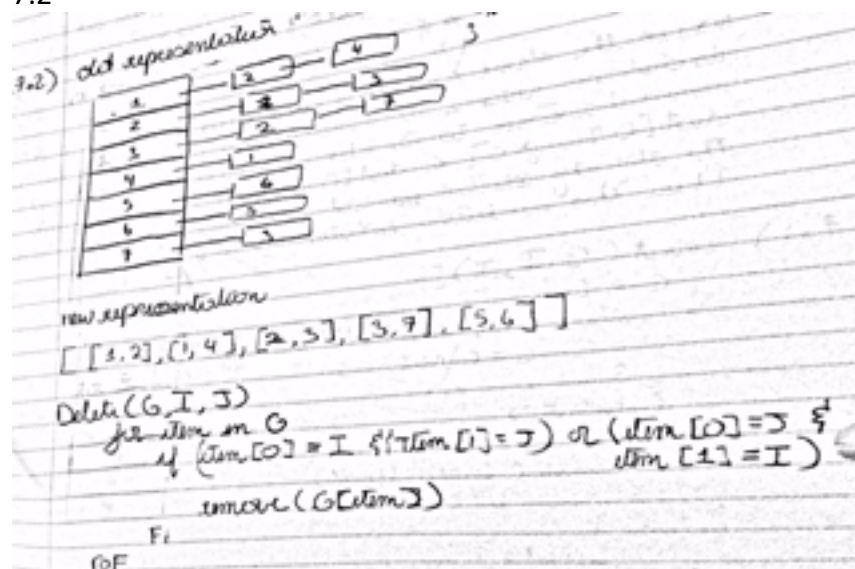 7.2
7.2) old representation
1 2 4
2 3
3 2 7
4 1
5 6
6 5
7 3
new representation
[ [1,2], [1,4], [2,3], [3,7], [5,6] ]
Delete (G, I, J)
for item in G
if (item [0] = I & item [1] = J) or (item [0] = J &
item [1] = I)
remove (G[item])
Fi
roF